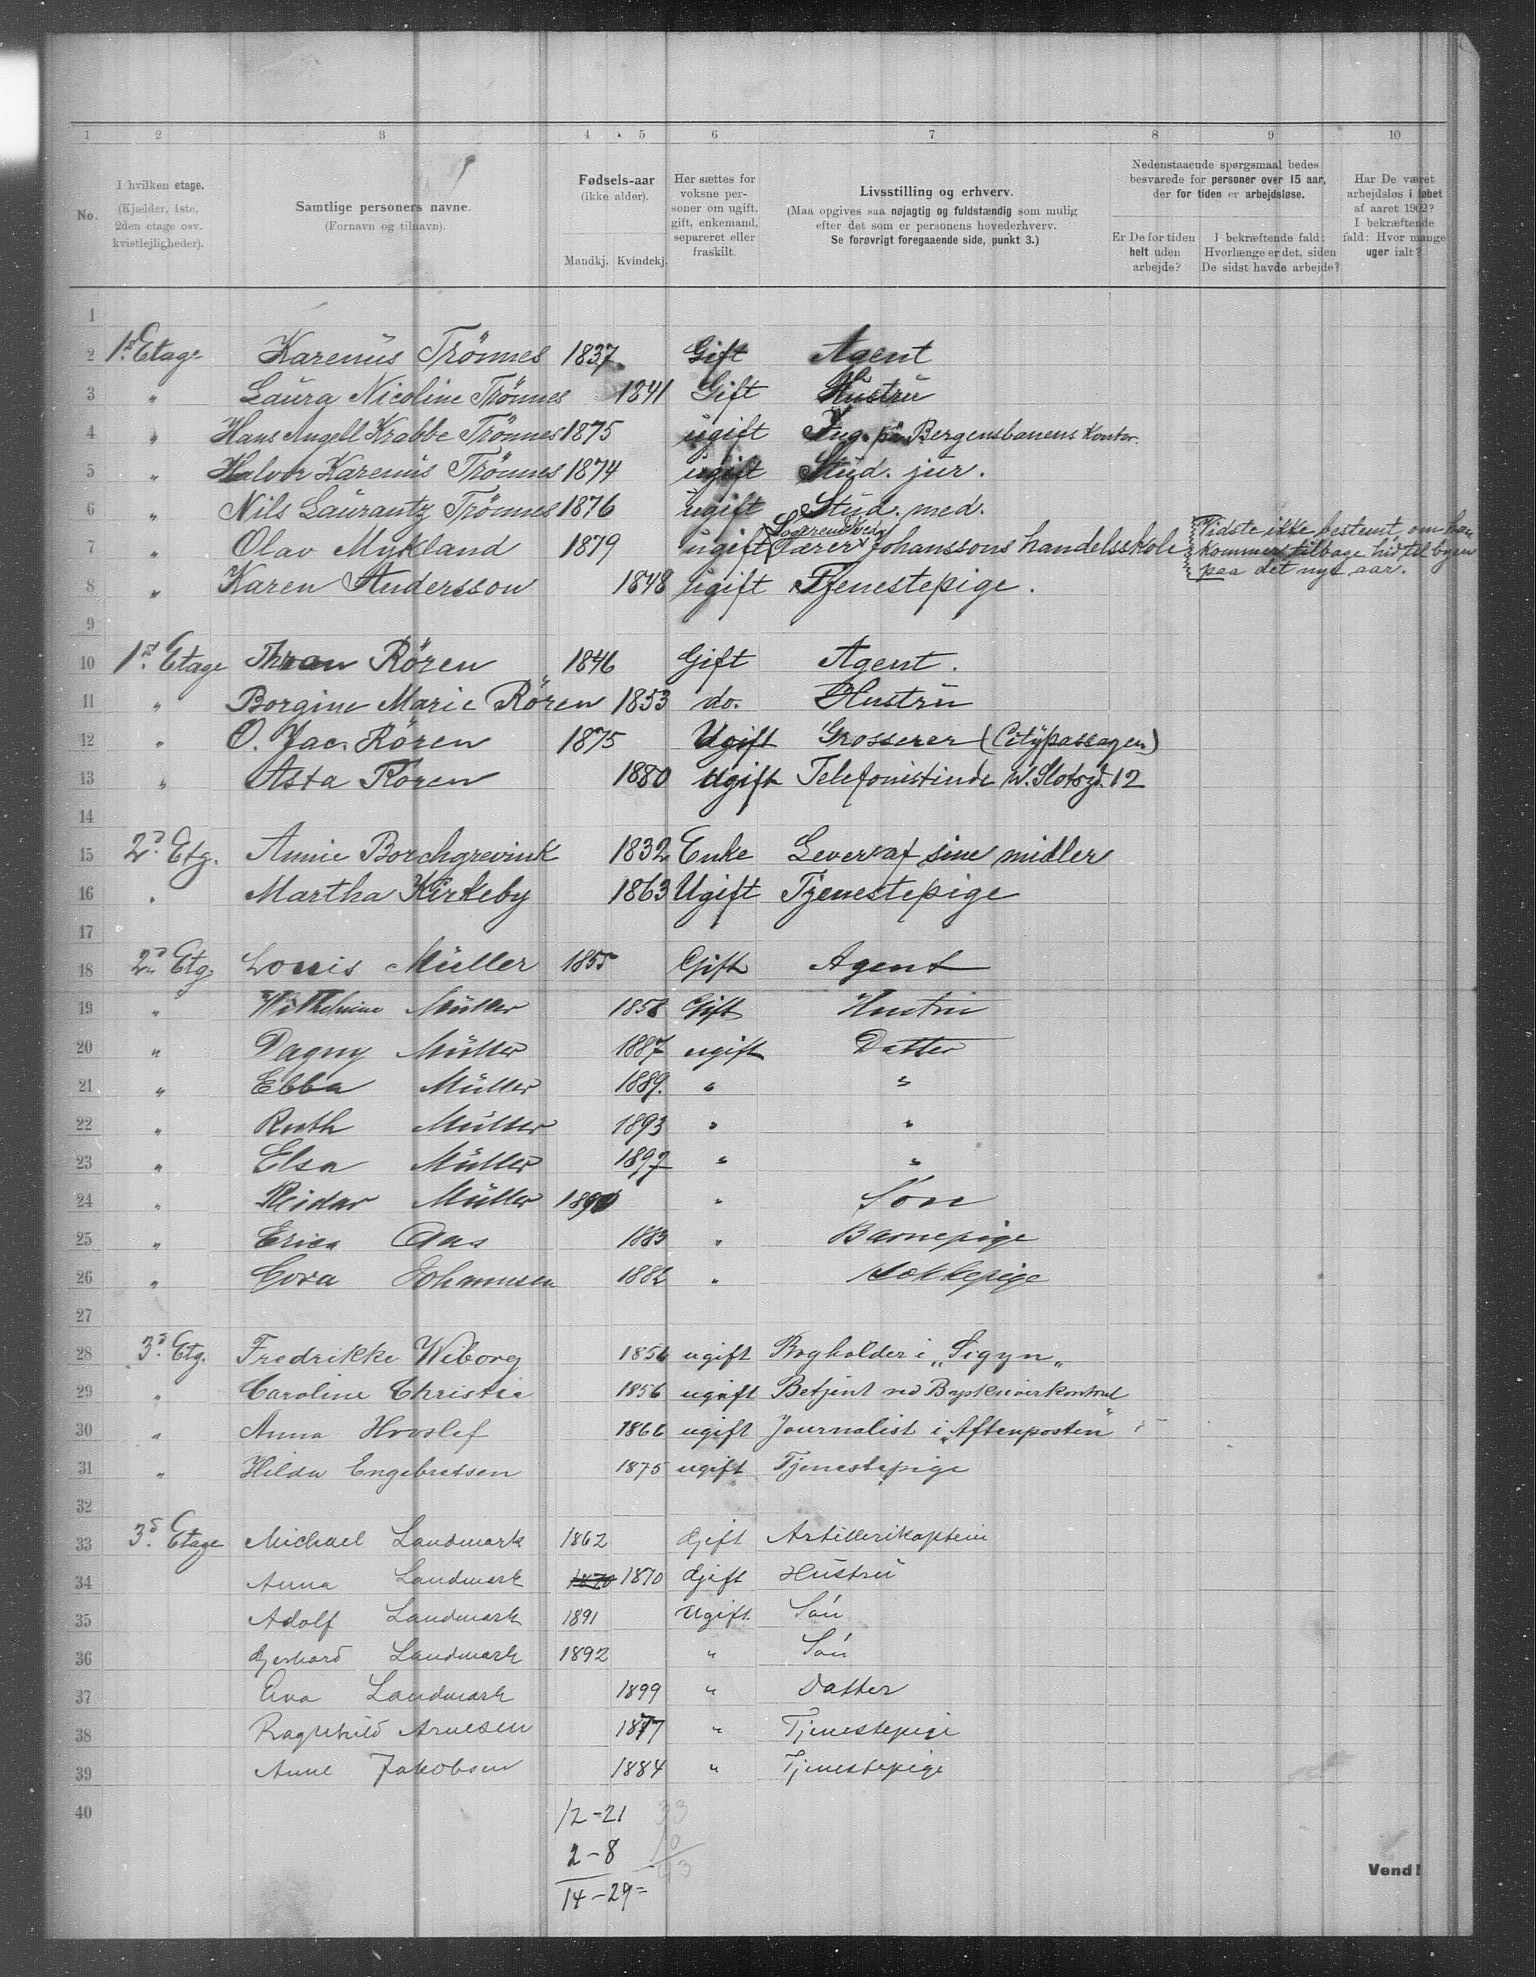 1 2 3 4 5 6 7 8 9 10
No.
I hvilken etage.
(Kjælder, 1ste,
2den etage osv.
kvistlejligheder).
Samtlige personers navne.
(Fornavn og tilnavn).
Fødsels-aar
(ikke alder).
Mandkj. Kvindekj.
Her sættes for
voksne per-
soner om ugift,
gift, enkemand,
separeret eller
fraskilt.
Livsstilling og erhverv.
(Maa opgives saa nøjagtig og fuldstændig som mulig
efter det som er personens hovederhverv.
Se forøvrigt foregaaende side, punkt 3.)
Nedenstaaende spørgsmaal bedes
besvarede for personer over 15 aar,
der for tiden er arbejdsløse.
Er De for tiden
helt uden
arbejde?
I bekræftende fald:
Hvorlænge er det, siden
De sidst havde arbejde?
Har De været
arbejdsløs i løbet
af aaret 1902?
I bekræftende
fald: Hvor mange
uger ialt?
1
2 1st Etage Karenüs Trönnes 1837 Gift Agent
3 " Laüra Nicoline Trönnes 1841 Gift Hüstrü
4 " Hans Angell Krabbe Trönnes 1875 ugift Ing. på Bergensbanens Kontor.
5 " Halvor Karenüs Trönnes 1874 ugift Stüd. jur.
6 " Nils Laürantz Trönnes 1876 ugift Stüd. med.
7 " Olav Mykland 1879 ugift Lærer v Johanssons handelsskole Vidste ikke bestemt, om han
kommer tilbage hid til byen
paa det nye aar.
8 " Karen Andersson 1848 ugift Tjenestepige.
9
10 1st. Etage Rören 1846 Gift Agent.
11 " Borgine Marie Rören 1853 do. Hustrü
12 " O. Jac. Rören 1875 Ugift Grosserer (Citypassagen)
13 " Asta Rören 1880 Ugift Telefonistinde N. Slotsgd. 12
14
15 2d. Etg. Annie Borchgrevink 1832 Enke Lever af sine midler
16 " Martha Kirkeby 1863 Ugift Tjenestepige
17
18 2d Etg. Louis Müller 1855 Gift Agent
19 " Wilhelmine Müller 1858 Gift Hustru
20 " Dagny Müller 1887 ugift Datter
21 " Ebba Müller 1889. " "
22 " Ruth Müller 1893 " "
23 " Elsa Müller 1897 " "
24 " Reidar Müller 1890 " Søn
25 " Erica Aas 1883 " Barnepige
26 " Cora Johannsen 1882 " Kokkepige
27
28 3d. Etg. Fredrikke Wiborg 1856 ugift Bogholder i „Sigyn„
29 " Caroline Christie 1856 ugift Betjent ved
30 " Anna Hovslef 1866 ugift Journalist i „Aftenposten"
31 " Hilda Engebretsen 1875 ugift Tjenestepige
32
33 3d. Etage Michael Landmark 1862 Gift Artillerikaptein
34 Anna Landmark 1870 1870 Gift Hüstrü
35 Adolf Landmark 1891 Ugift Sön
36 Gerhard Landmark 1892 " Sön
37 Eva Landmark 1899 " Datter
38 Ragnhild Arnesen 1877 " Tjenestepige
39 Anne Jakobsen 1884 " Tjenestepige
40
12-21 33
2-8 10
14-29= 43
Vend!